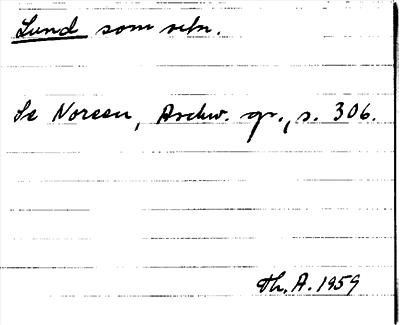 Lund som refn.
Se Noreen, Aschw. gr., s. 306.
Th. A. 1959